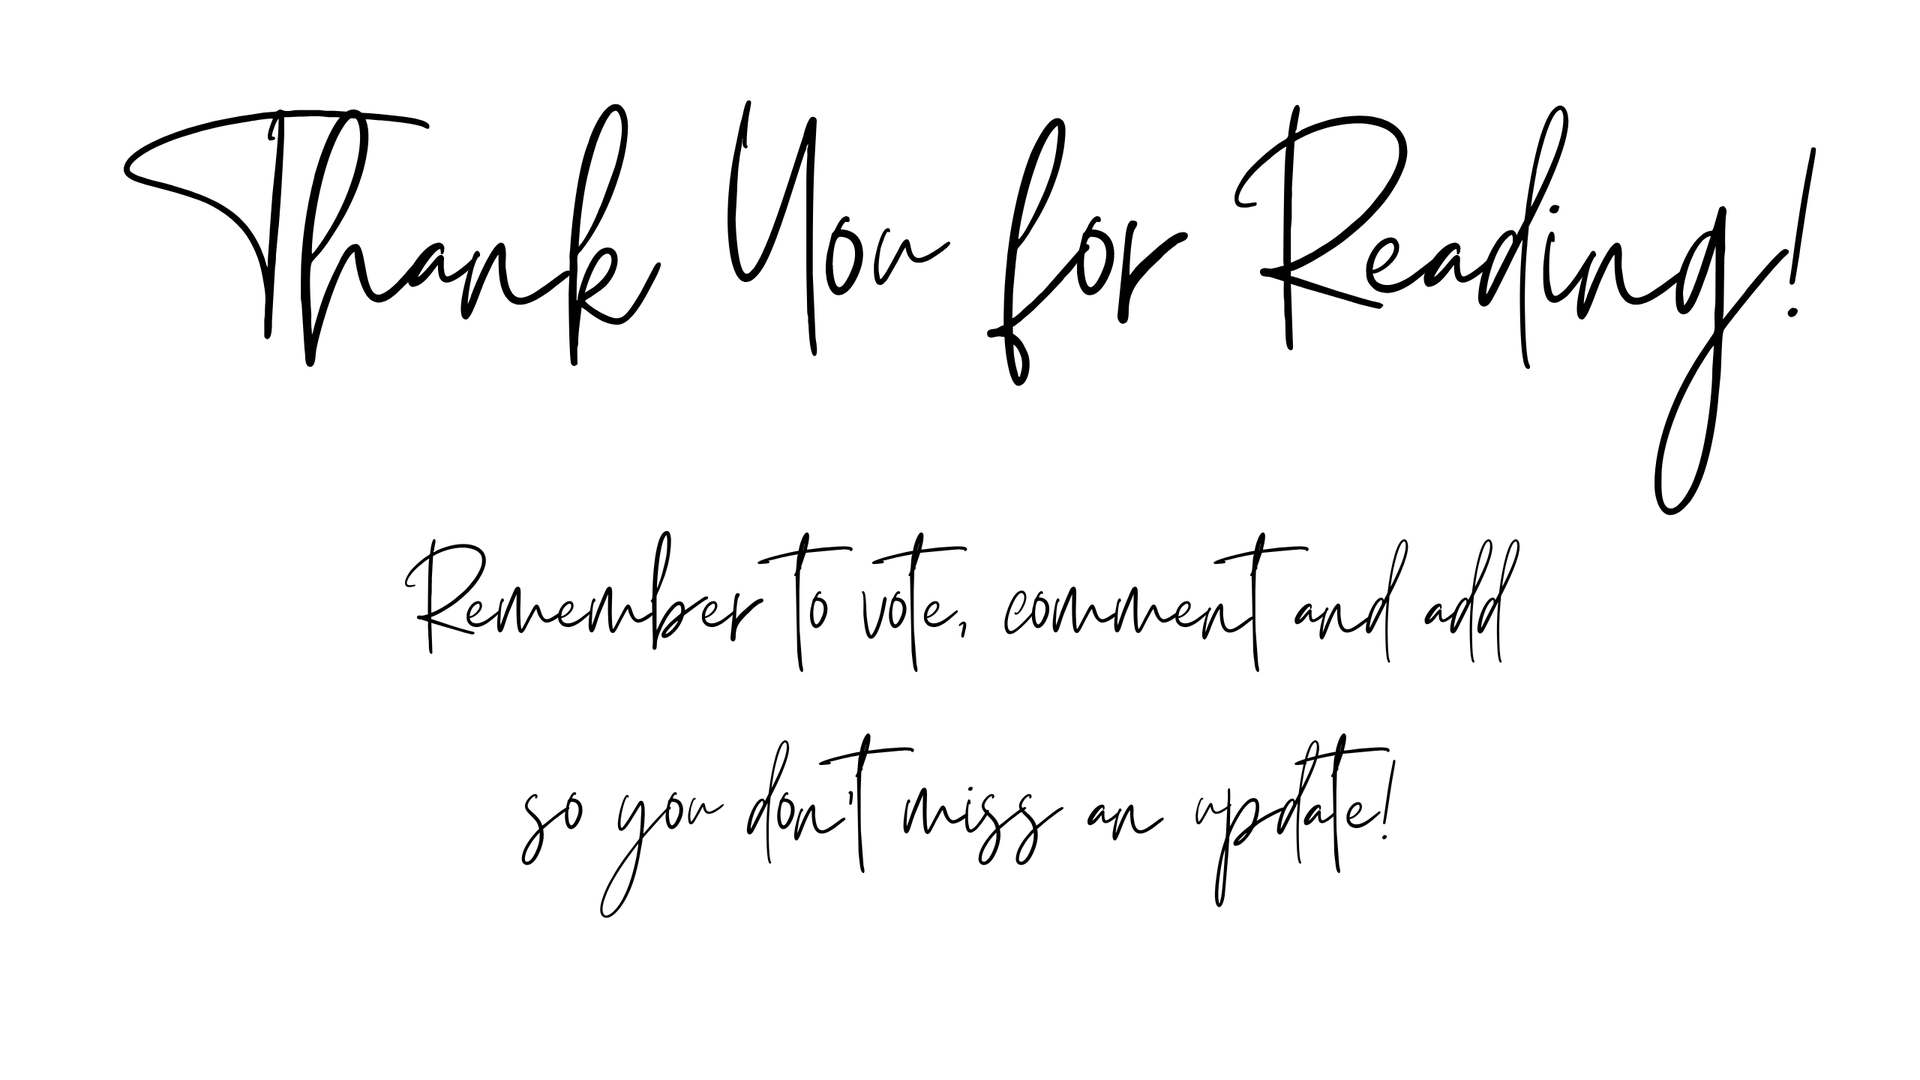 Thank You for Reading!
Remember to vote, comment and add
so you don't miss an update!